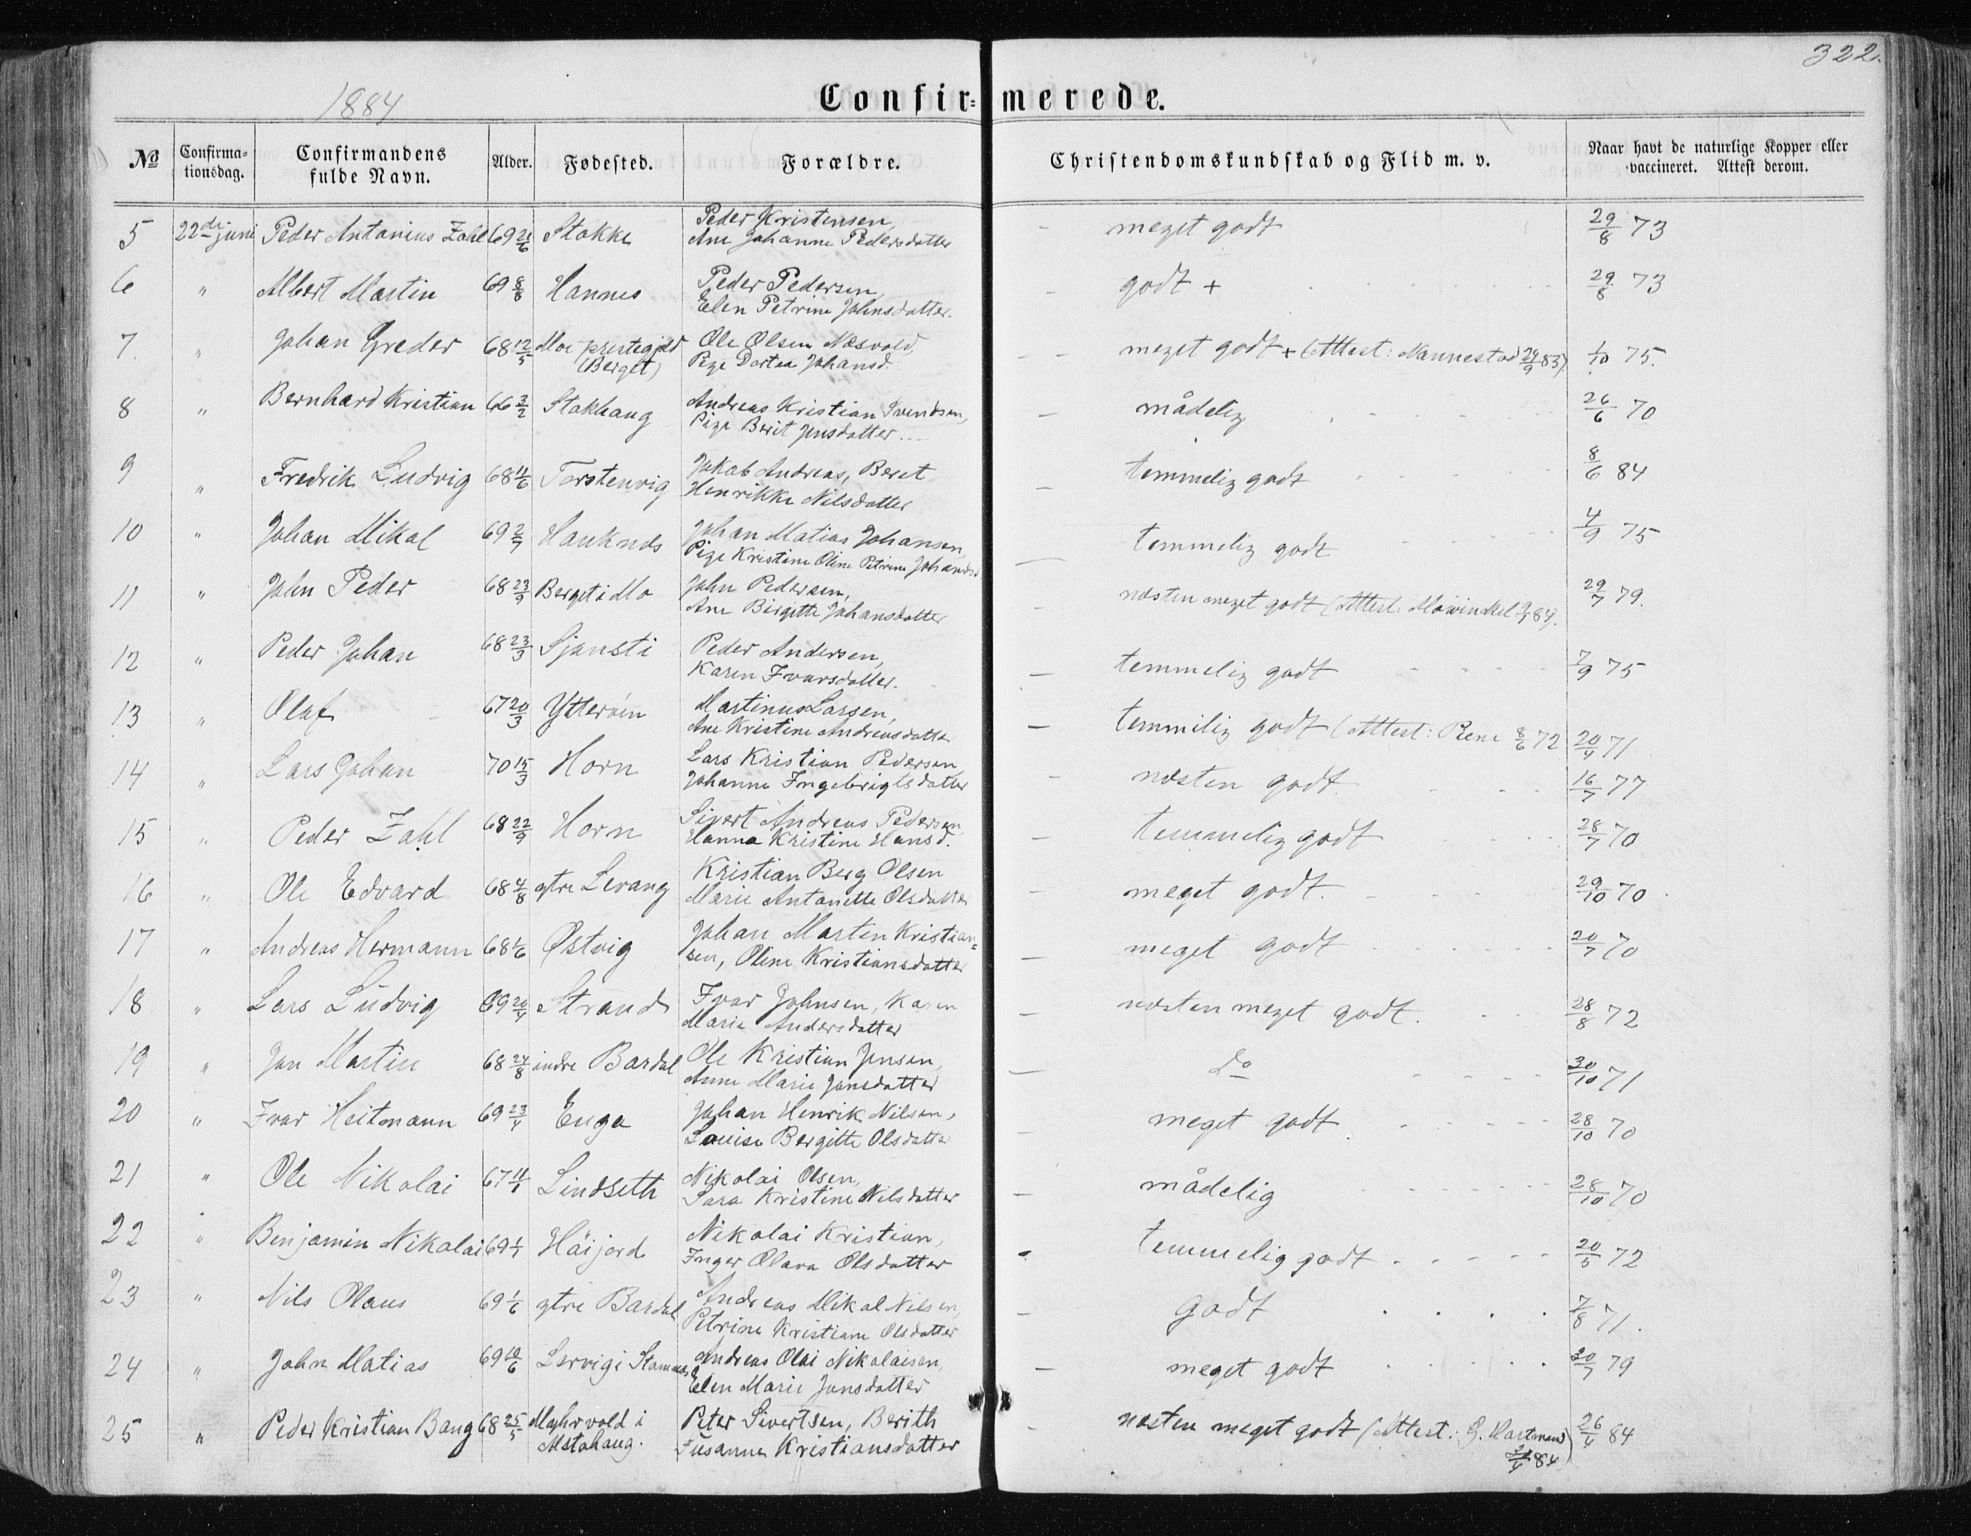 322.
1884
Confir=merede.
No Confirma=tionsdag. Confirmandens fulde Navn. Alder. Fødested. Forældre. Christendomskundskab og Flid m. v. Naar havt de naturlige Kopper eller vaccineret. Attest derom.
5 22de juni Peder Antonius Zahl 69 21/6 Stokke Peder Kristensen, Ane Johanna Pedersdatter - meget godt 29/8 73
6 " Albert Martin 69 8/8 Hannes Peder Pedersen, Elen Petrine Johnsdatter. - godt + 29/8 73
7. " Johan Greder 68 12/5 Moe prestegjeld (Berget) Ole Olsen Næsvold, Pige Dortea Johansd. - - meget godt + (Attest: Nannestad 24/9 83) 1/10 75.
8 " Bernhard Kristian 66 3/2 Stokhaug Andreas Kristian Svendsen, Pige Berit Jensdatter - mådelig 26/6 70
9 " Fredrik Ludvig 68 11/6 Torstenvig Jakob Andreas, Beret Henrikke Nilsdatter - temmelig godt 8/6 84
10 " Johan Mikal 69 2/7 Hauknes Johan Matias Johansen, Pige Kristine Oline Petrine Johansd. - temmelig godt 4/9 75
11 " John Peder 68 23/9 Berget i Mo John Pedersen, Ane Birgitte Johansdatter - næsten meget godt (Attest: Mowinckel 84). 29/7 79.
12 " Peder Johan 68 23/3 Sjønsti Peder Andersen, Karen Ivarsdatter. - temmelig godt 7/9 75
13 " Olaf 67 20/3 Ytterøin Martinus Larsen, Ane Kristine Andreasdatter - temmilig godt (Attest: Rene 8/6 72 20/4 71
14 " Lars Johan 70 15/3 Horn Lars Kristian Pedersen, Johanna Ingebrigtsdatter - næsten godt. 16/7 77
15 " Peder Zahl 68 22/9 Horn Sivert Andreas Pedersen, Hanna Kristine Hansd. - temmelig godt 28/7 70
16 " Ole Edvard 68 4/8 ytre Levang Kristian Berg Olsen Marie Antonette Olsdatter - meget godt. 29/10 70
17 " Andreas Hermann 68 1/6 Østvig Johan Martin Kristian=sen, Oline Kristiansdatter - meget godt 20/7 70
18 " Lars Ludvig 69 20/4 Strand Ivar Johnsen, Karen Marie Andersdatter - næsten meget godt. 28/8 72
19 " Jan Martin 68 24/8 indre Bardal Ole Kristian Jensen, Anne Marie Jansdatter - do 30/10 71
20 " Ivar Heitmann 69 23/4 Enge Johan Henrik Nilsen, Louise Bergitte Olsdatter - meget godt. 28/10 70
21 " Ole Nikolai 67 11/1 Lindseth Nikolai Olsen, Sara Kristine Nilsdatter - mådelig 28/10 70
22 " Benjamin Nikolai 69 1/7 Håijord Nikolai Kristian, Inger Olava Olsdatter - temmelig godt 20/5 72
23 " Nils Olaus 69 1/6 ytre Bardal Andreas Mikal Nilsen, Petrine Kristiane Olsdatter - godt 7/8 71.
24 " John Matias 69 10/6 Lervig i Stamnes Andreas Olai Nikolaisen, Elen Marie Jonsdatter - meget godt 20/7 79
25 " Peder Kristian Bang 68 25/5 i Alstahaug. Peter Sivertsen, Berith Susanna Kristiansdatter - næsten meget godt (Attest: G. Hartman 84) 26/4 84